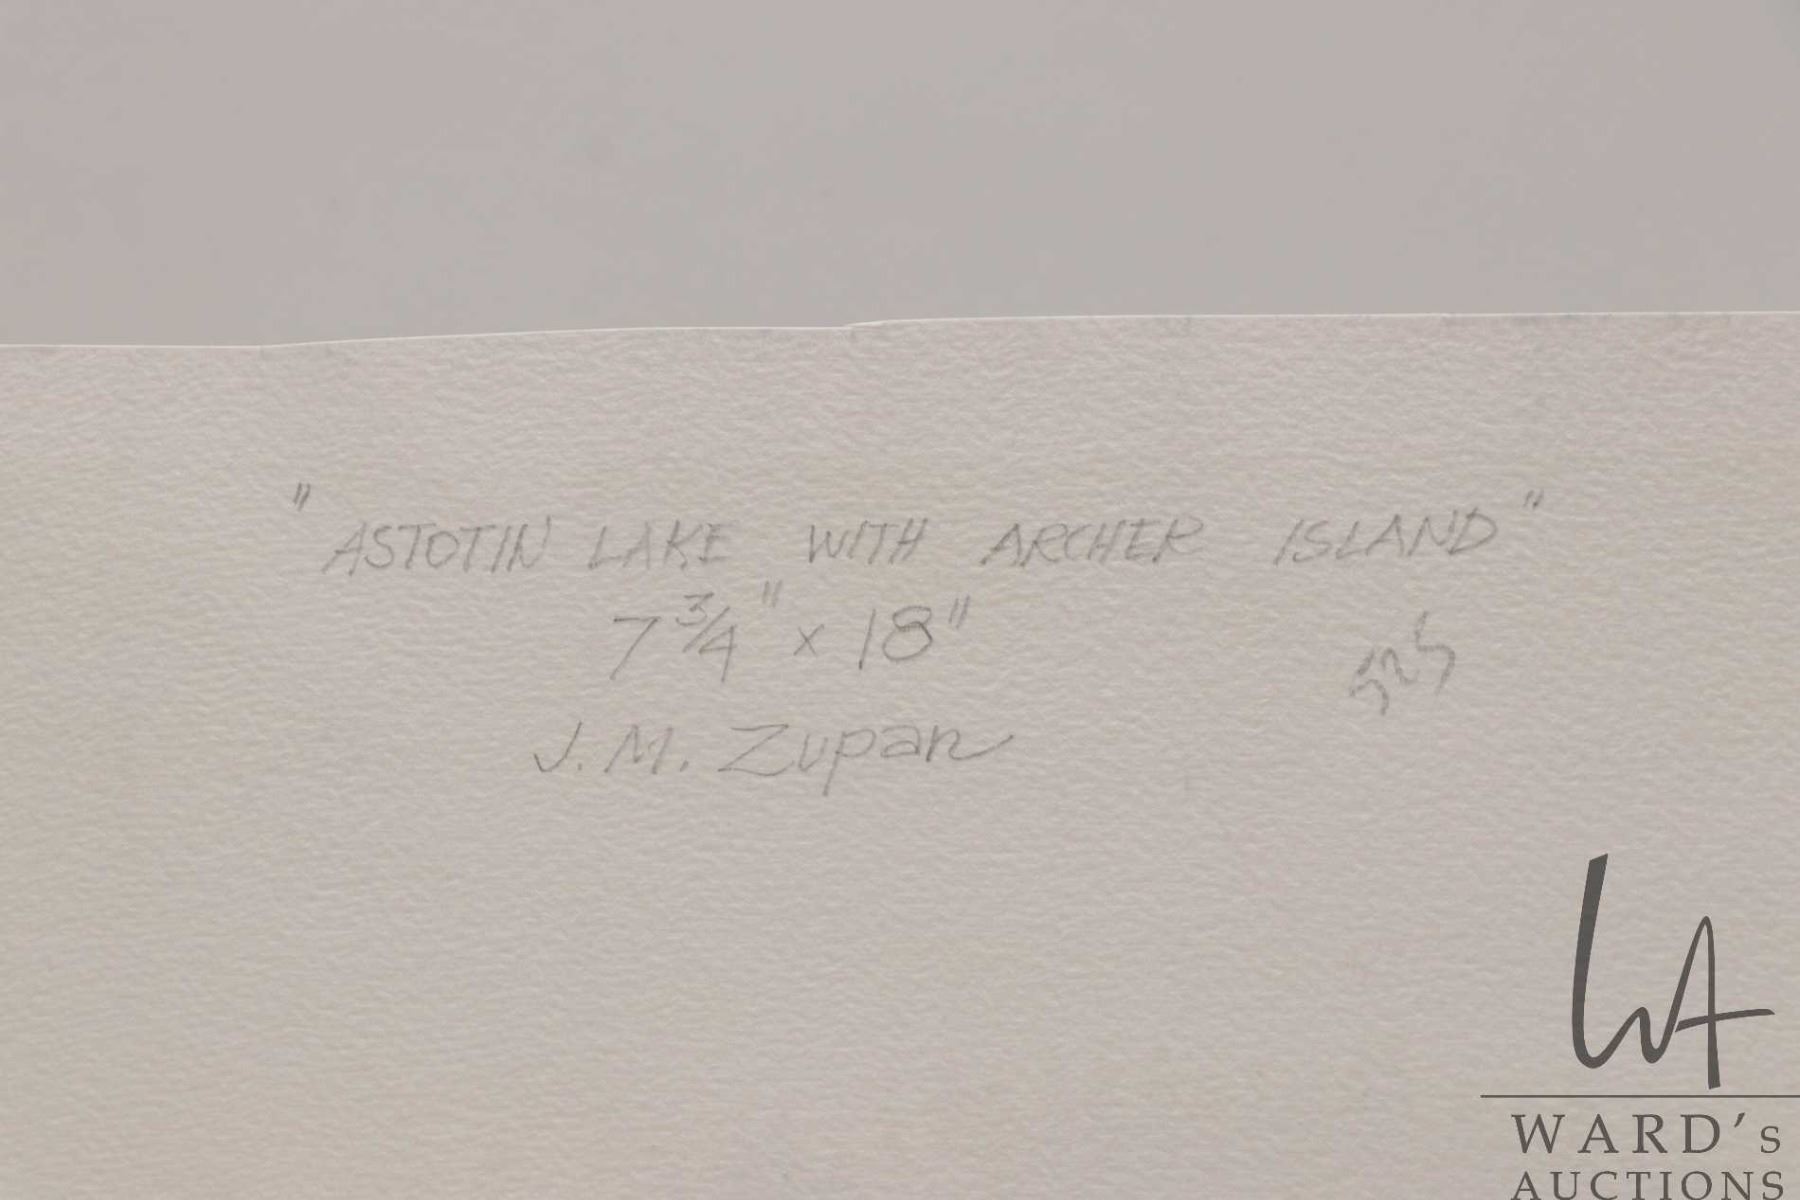 "ASTOTIN LAKE WITH ARCHER ISLAND"
7 3/4" x 18"
J. M. Zupan
WARD's
AUCTIONS